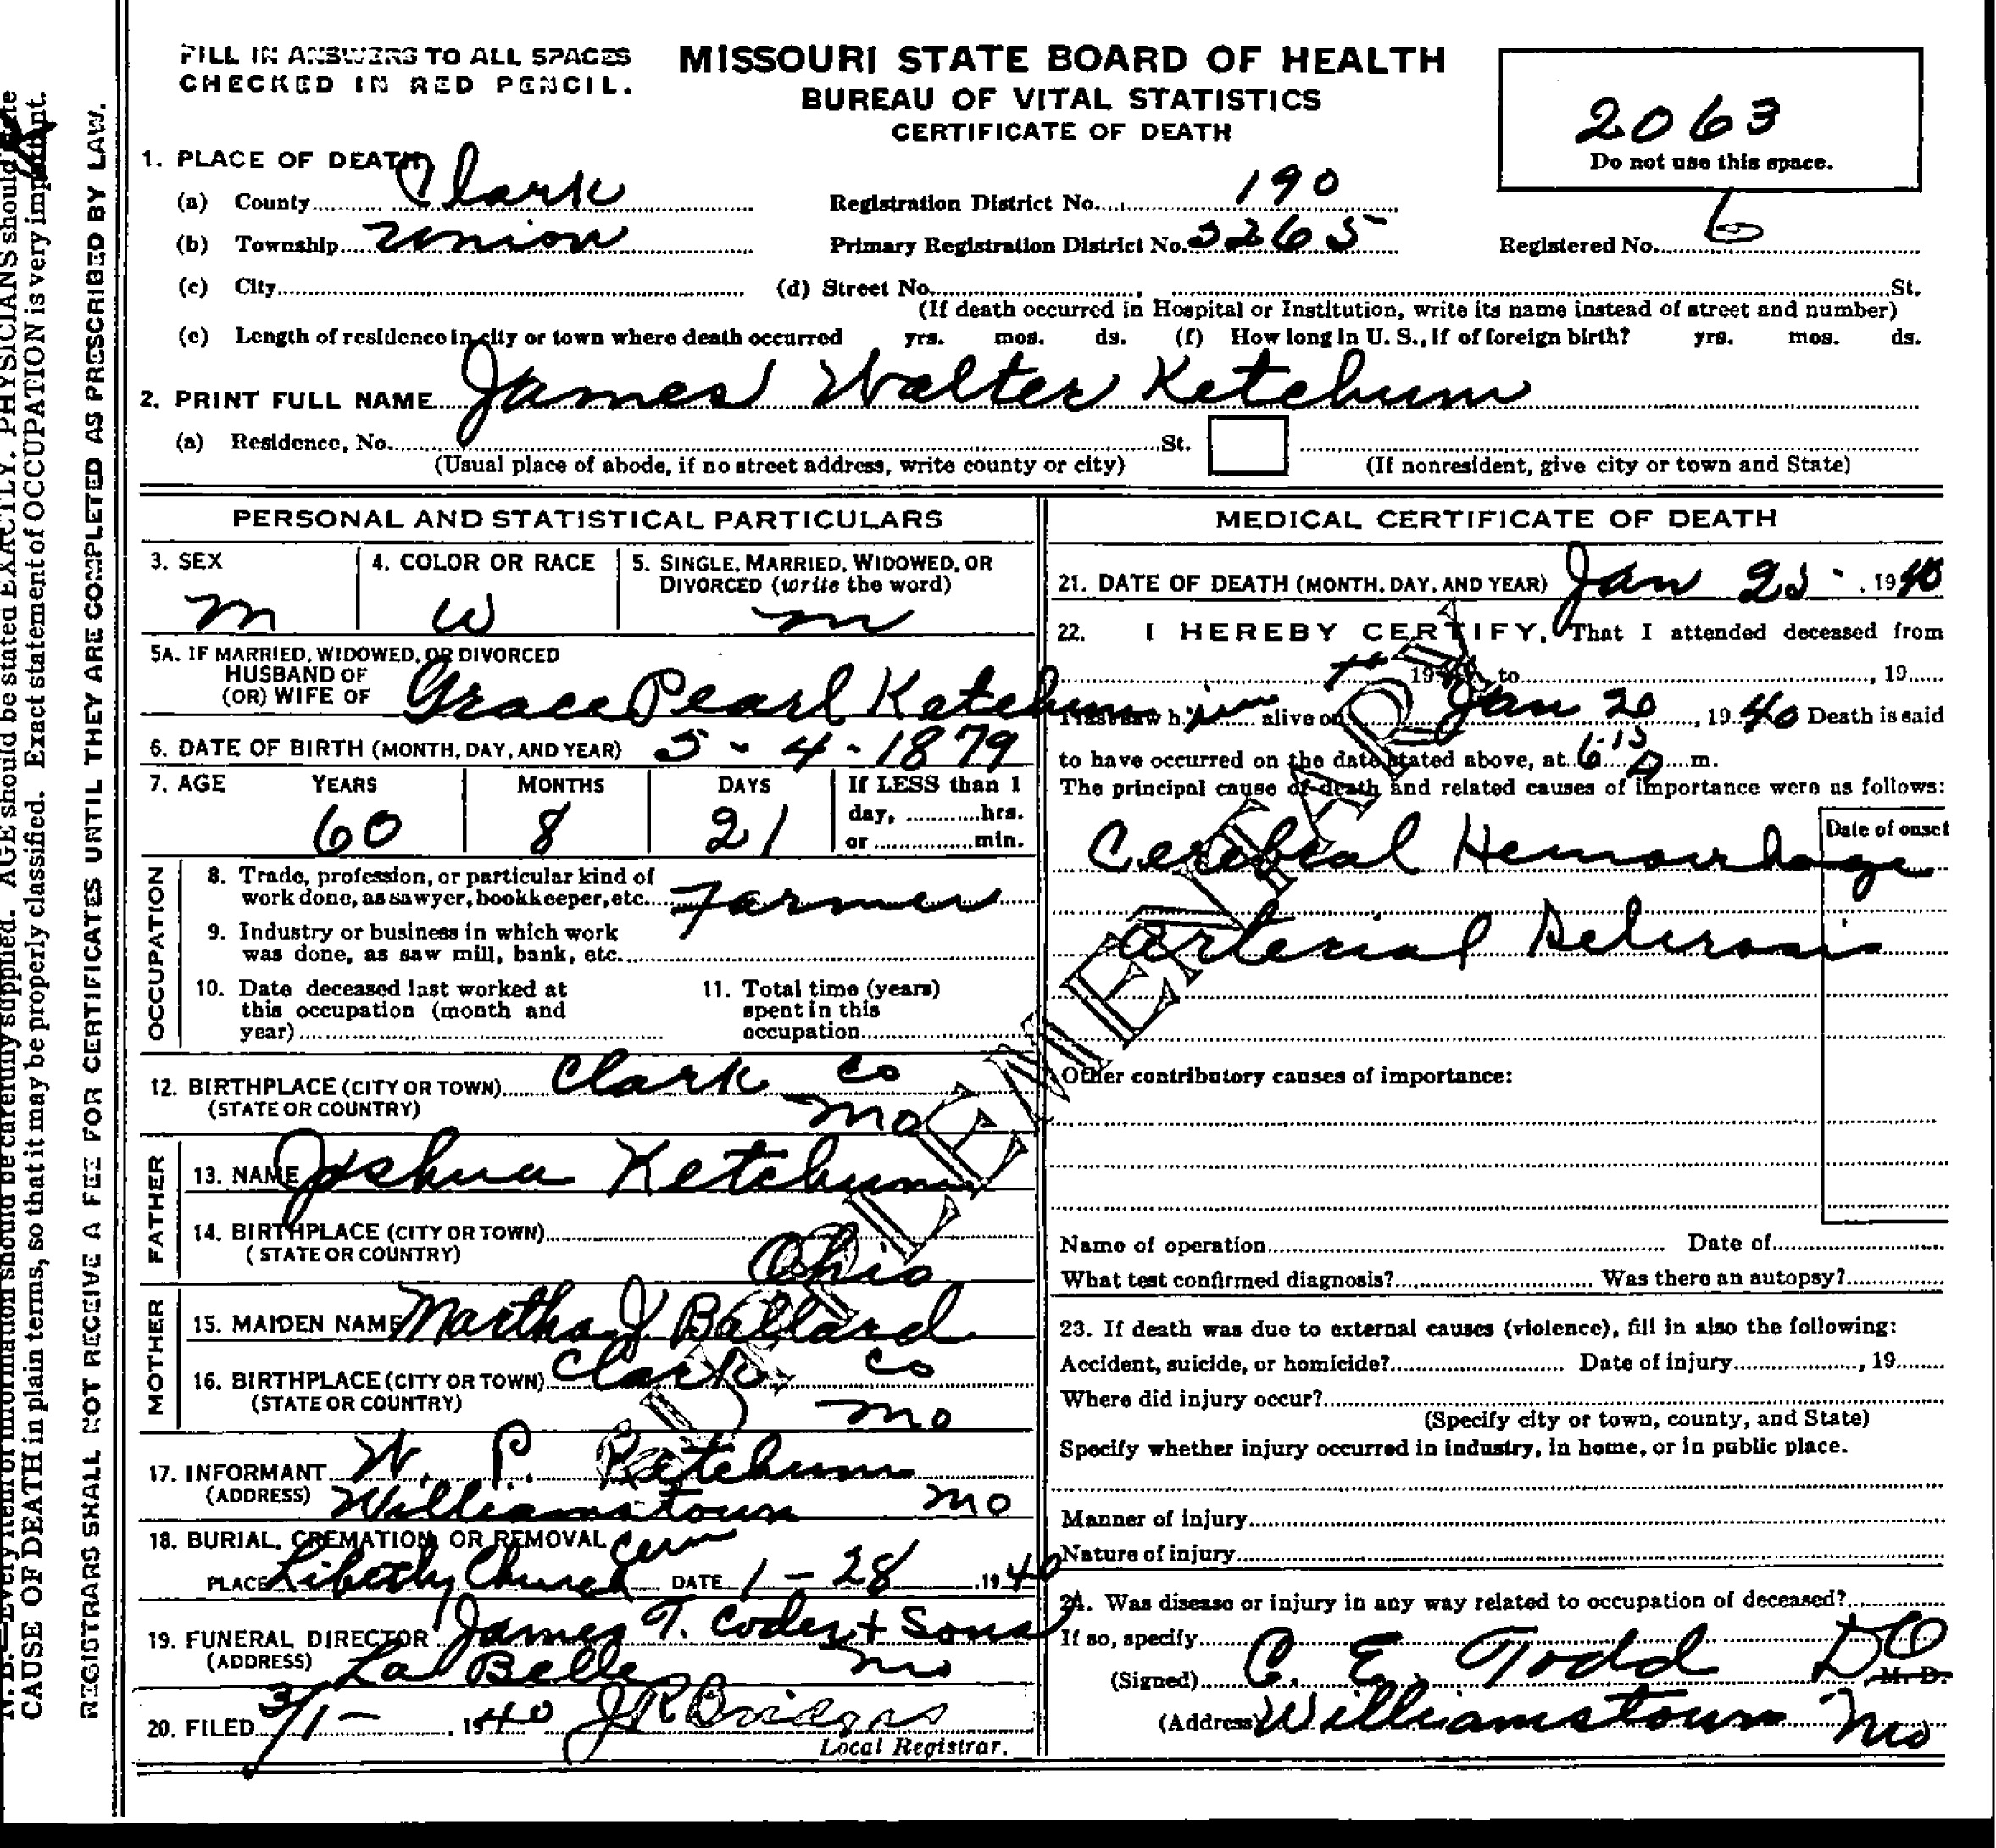 FILL IN ANSWERS TO ALL SPACES
CHECKED IN RED PENCIL.
MISSOURI STATE BOARD OF HEALTH
BUREAU OF VITAL STATISTICS
CERTIFICATE OF DEATH
2063
Do not use this space.
1. PLACE OF DEATH
(a) County Clark Registration District No. 190
(b) Township Union Primary Registration District No. 3265 Registered No. 6
(c) City (d) Street No. St.
(If death occurred in Hospital or Institution, write its name instead of street and number)
(e) Length of residence in city or town where death occurred yrs. mos. ds. (f) How long in U. S., if of foreign birth? yrs. mos. ds.
2. PRINT FULL NAME James Walter Ketchum
(a) Residence, No. St.
(Usual place of abode, if no street address, write county or city) (If nonresident, give city or town and State)
PERSONAL AND STATISTICAL PARTICULARS
3. SEX 4. COLOR OR RACE 5. SINGLE, MARRIED, WIDOWED, OR
DIVORCED (write the word)
M W M
5A. IF MARRIED, WIDOWED, OR DIVORCED
HUSBAND OF
(OR) WIFE OF Grace Pearl Ketchum
6. DATE OF BIRTH (MONTH, DAY, AND YEAR) 5-4-1879
7. AGE YEARS MONTHS DAYS If LESS than 1
day, hrs.
or min.
60 8 21
OCCUPATION
8. Trade, profession, or particular kind of
work done, as sawyer, bookkeeper, etc. Farmer
9. Industry or business in which work
was done, as saw mill, bank, etc.
10. Date deceased last worked at
this occupation (month and
year)
11. Total time (years)
spent in this
occupation
12. BIRTHPLACE (CITY OR TOWN) Clark Co
(STATE OR COUNTRY) Mo
FATHER
13. NAME Joshua Ketchum
14. BIRTHPLACE (CITY OR TOWN)
(STATE OR COUNTRY) Ohio
MOTHER
15. MAIDEN NAME Martha J Ballard
16. BIRTHPLACE (CITY OR TOWN) Clark Co
(STATE OR COUNTRY) Mo
17. INFORMANT W. P. Ketchum
(ADDRESS) Williamstown Mo
18. BURIAL, CREMATION, OR REMOVAL Cem
PLACE Liberty Church DATE 1-28, 1940
19. FUNERAL DIRECTOR James T. Coder + Sons
(ADDRESS) La Belle Mo
20. FILED 3/1-, 1940 J R Bridges
Local Registrar.
MEDICAL CERTIFICATE OF DEATH
21. DATE OF DEATH (MONTH, DAY, AND YEAR) Jan 25, 1940
22. I HEREBY CERTIFY, That I attended deceased from
19 to , 19
I last saw him alive on Jan 20, 1940 Death is said
to have occurred on the date stated above, at 6:15 A m.
The principal cause of death and related causes of importance were as follows:
Date of onset
Cerebral Hemorrhage
Arterial Sclerosis
Other contributory causes of importance:
Name of operation Date of
What test confirmed diagnosis? Was there an autopsy?
23. If death was due to external causes (violence), fill in also the following:
Accident, suicide, or homicide? Date of injury , 19
Where did injury occur?
(Specify city or town, county, and State)
Specify whether injury occurred in industry, in home, or in public place.
Manner of injury
Nature of injury
24. Was disease or injury in any way related to occupation of deceased?
If so, specify
(Signed) C. E. Todd DO, M. D.
(Address) Williamstown Mo
REGISTRARS SHALL NOT RECEIVE A FEE FOR CERTIFICATES UNTIL THEY ARE COMPLETED AS PRESCRIBED BY LAW.
N.B.—Every item of information should be carefully supplied. AGE should be stated EXACTLY. PHYSICIANS should state
CAUSE OF DEATH in plain terms, so that it may be properly classified. Exact statement of OCCUPATION is very important.